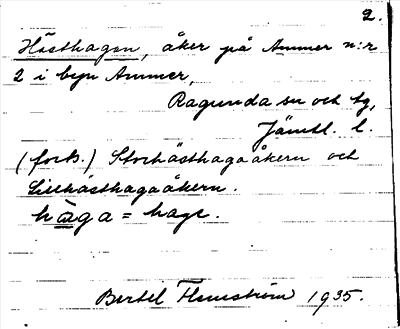 2.
Hästhagen, åker på Ammer n:r
2 i byn Ammer,
Ragunda sn och tg,
Jämtl. l.
(forts.) Storhästhagaåkern och
Lillhästhagaåkern.
hàga = hage.
Bertel Flemström 1935.